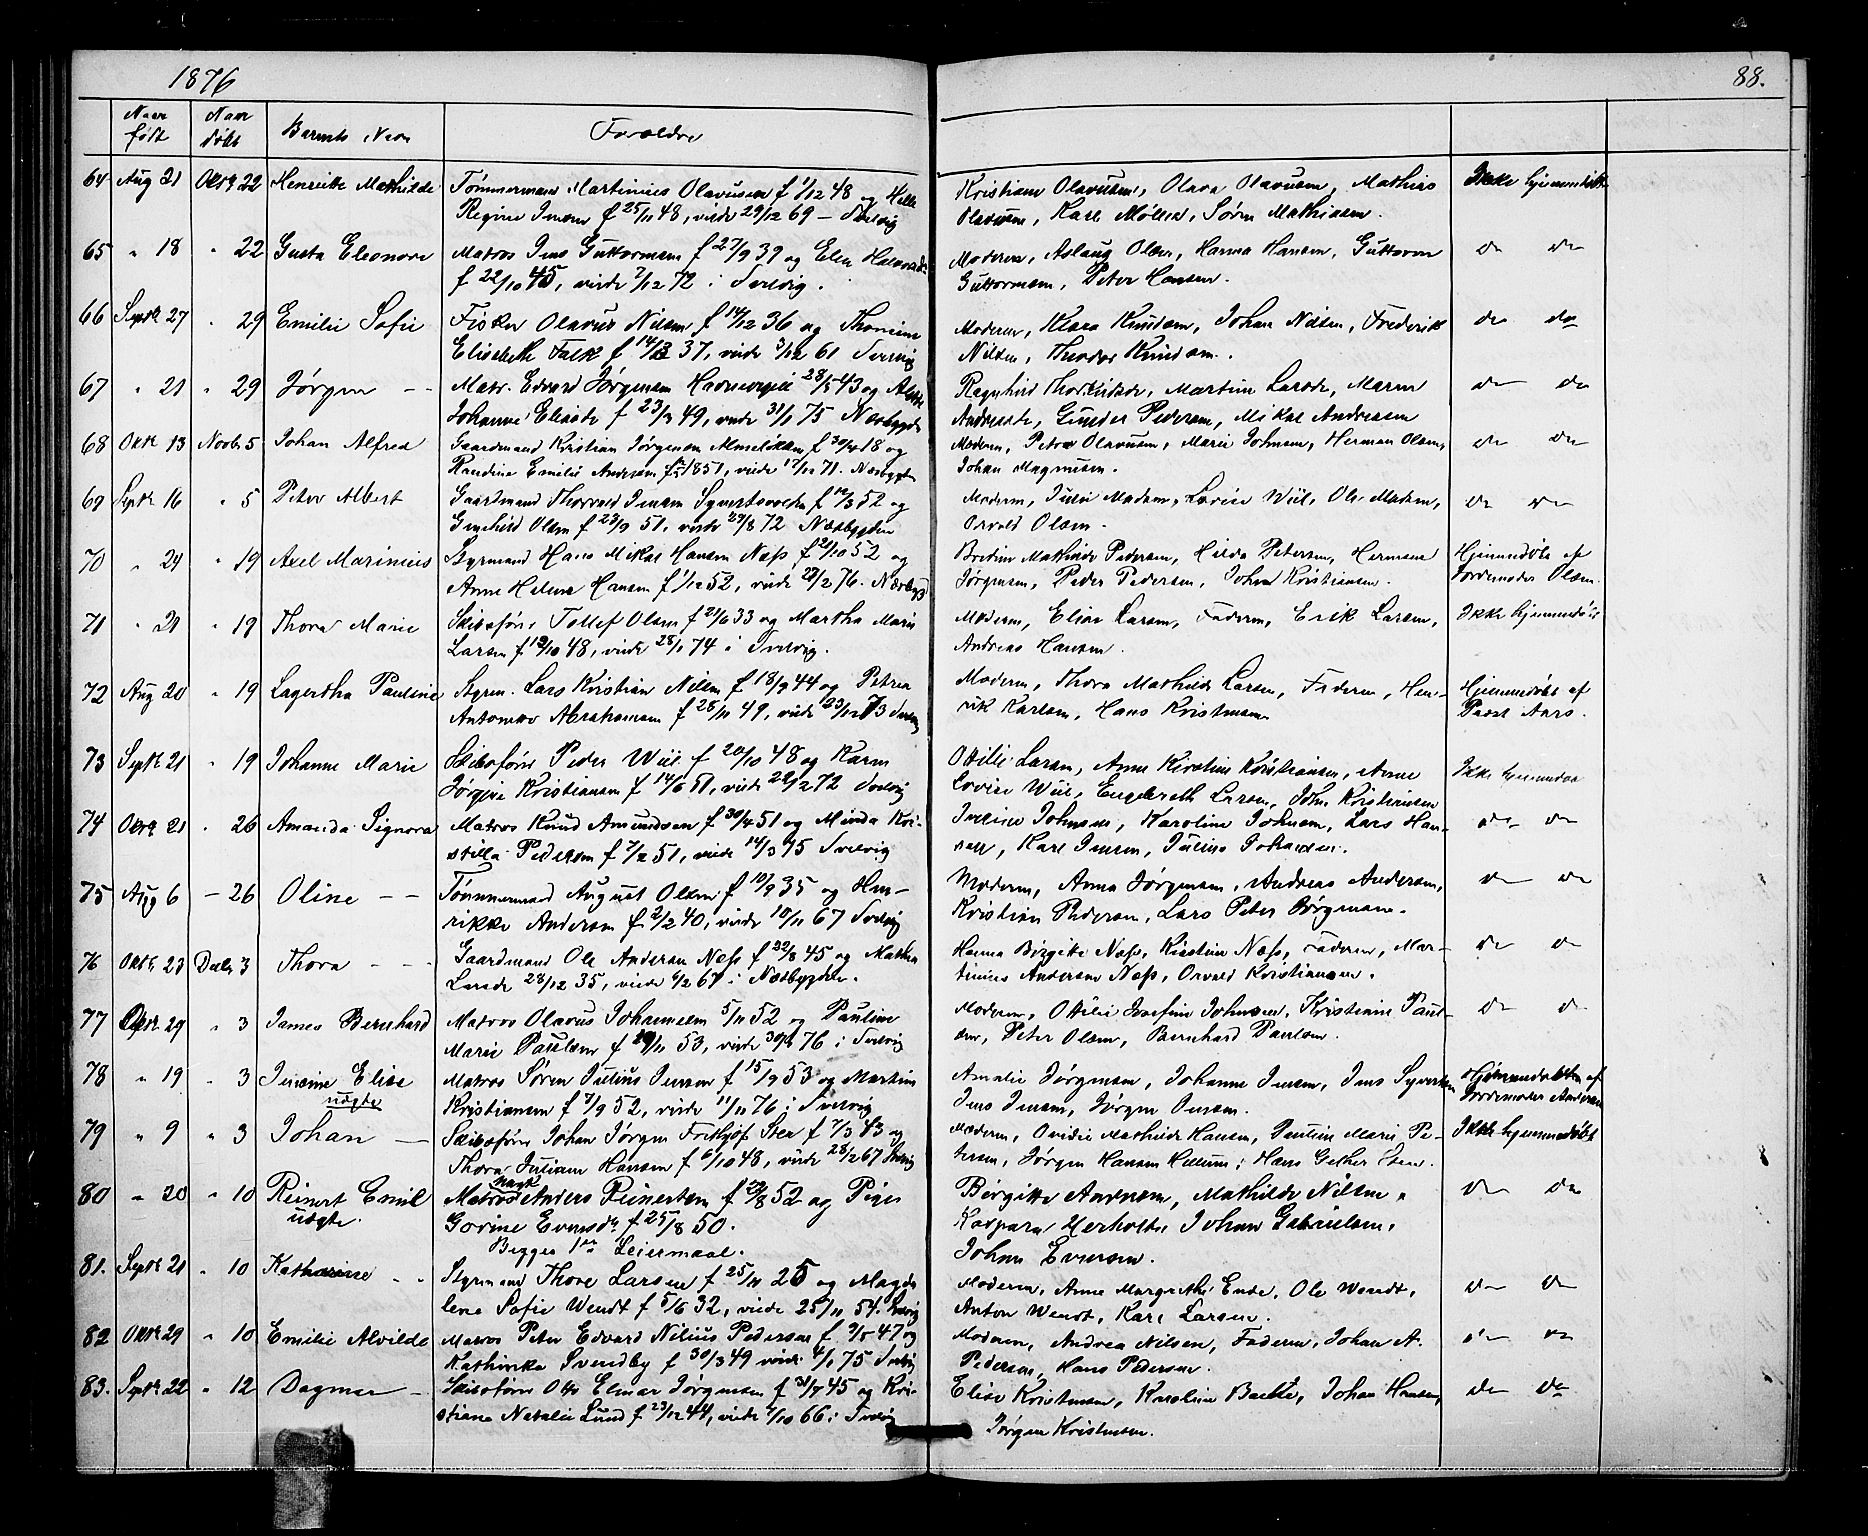 1876
88.
Naar født Naar døbt Barnets Navn Forældre
64 Aug 21 Oktb 22 Henriette Mathilde Tømmermand Martinius Olavusen f 1/12 48 og Helle Kristiane Olavusen, Olava Olavusen, Mathias Ikke hjemmedøbt
Regine Jensen f 25/11 48, viede 29/12 69 – Svelvig Olavusen, Karl Møller, Søren Mathisen.
65 " 18 " 22 Gusta Eleonore Matros Jens Guttormsen f 27/9 39 og Elen Moderen, Aslaug Olsen, Hanna Hansen, Guttorm do do
f 22/10 45, viede 7/12 72 i Svelvig. Guttormsen, Peter Hansen.
66 Septb 27 " 29 Emilie Sofie Fisker Olavus Nilsen f 14/12 36 og Thomine Moderen, Klara Knudsen, Johan Nilsen, Frederik do do
Elisabeth Falk f 37, viede 3/12 61 Svelvig Nilsen, Theodor Knudsen.
67 " 21 " 29 Jørgen – – Matr. Edvard Jørgensen 28/5 43 og Ragnhild Martine Larsdr, Maren do do
Johanne Eliasdr f 23/3 49, viede 31/1 75 Næsbygden Andreasdr, Gunder Pedersen, Mikal Andreasen
68 Oktb 13 Novb 5 Johan Alfred Gaardmand Kristian Jørgensen f 30/4 18 og Moderen, Petra Olavusen, Marie Johnsen, Herman Olsen, do do
Randine Emilie Andersen 1851, viede 17/12 71. Næsbygden Johan Magnusen.
69 Septb 16 " 5 Peter Albert Gaardmand Thorvald Jensen f 52 og Moderen, Julie Madsen, Lovise Wiil, Ole Madsen, do do
Gunhild Olsen f 23/9 51, viede 29/8 72 Næsbygden Osvald Olsen.
70 " 24 " 19 Axel Marinius Styrmand Hans Mikal Hansen Næss f 21/10 52 og Bredine Mathilde Pedersen, Hilda Petersen, Herman Hjemmedøbt af
Anne Helene Hansen f 1/12 52, viede 20/2 76. Næsbygd Jørgensen, Peder Pedersen, Johan Kristiansen. Jordemoder Olsen.
71 " 21 " 19 Thora Marie Skibsfører Tollef Olsen f 21/6 33 og Martha Marie Moderen, Elise Larsen, Faderen, Erik Larsen, Ikke hjemmedøbt
Larsen f 48, viede 28/1 74 i Svelvig. Andreas Hansen.
72 Aug 20 " 19 Lagertha Pauline Styrm. Lars Kristian Nilsen f 18/9 44 og Petrea Moderen, Thora Mathilde Larsen, Faderen, Hen- Hjemmedøbt af
Antonette Abrahamsen f 28/11 49, viede 23/12 73 Svelvig rik Karlsen, Hans Kristensen Præst Aars.
73 Septb 21 " 19 Johanne Marie Skibsfører Peder Wiil f 20/10 48 og Karen Ottilie Larsen, Anne Kirstine Kristiansen, Anne Ikke hjemmedøbt
Jørgine Kristiansen f 14/6 51, viede 22/2 72 Svelvig Lovise Wiil, Engebreth Larsen, John Kristiansen
74 Oktb 21 " 26 Amanda Signora Matros Knud Amundsen f 30/4 51 og Minda Kri- Juline Johnsen, Karoline Johnsen, Lars Han- do do
stilla Pedersen f 7/2 51, viede 14/3 75 Svelvig sen, Karl Jensen, Julius Johansen.
75 Aug 6 – 26 Oline – – Tømmermand August Olsen f 10/9 35 og Hen- Moderen, Anna Jørgensen, Andreas Andersen, do do
rikke Andersen f 2/2 40, viede 10/11 67 Svelvig Kristian Pedersen, Lars Peter Jørgensen.
76 Oktb 23 Decb 3 Thora – – Gaardmand Ole Andersen Næss f 22/8 45 og Mathea Hanna Birgitte Næss, Kirstine Næss, Faderen, Mar- do do
Larsdr 28/12 35, viede 4/2 67 i Næsbygden. tinius Andersen Næss, Osvald Kristiansen.
77 Oktb 29 " 3 James Bernhard Matros Olavus Johannesen 5/11 52 og Pauline Moderen, Ottilie Josefine Johnsen, Kristiane Paul- do do
Marie Paulsen f 53, viede 76 i Svelvig sen, Peter Olsen, Bernhard Paulsen.
78 " 19 " 3 Jensine Elise Matros Søren Julius Jensen f 15/9 53 og Martine Amalie Jørgensen, Johanne Jensen, Jens Syvertsen Hjemmedøbt af
uægte Kristiansen f 7/9 52, viede 11/11 76 i Svelvig Jens Jensen, Jørgen Jensen. Jordemoder Andersen
79 " 9 " 3 Johan – Skibsfører Johan Jørgen Frithjof Ster f 7/3 43 og Moderen, Ovidie Mathilde Hansen, Pauline Marie Pe- Ikke hjemmedøbt
Thora Juliane Hansen f 6/10 48, viede 28/2 67 Svelvig tersen, Jørgen Hansen Hellum, Hans Gether Sten.
80 " 20 " 10 Reinert Emil Matros Anders Reinertsen f 29/8 52 og Pige Birgitte Andersen, Mathilde Nilsen, do do
uægte. Gorine Eversdr f 25/8 50. Kaspara Herholdt, Johan Gabrielsen,
Begges 1ste Leiermaal. Johan Eversen.
81. Septb 21 " 10 Kathrine – – Styrmand Thore Larsen f 25/11 25 og Magda- Moderen, Anne Margrethe Ende, Ole Wendt, do do
lena Sofie Wendt f 5/6 32, viede 25/11 54. Svelvig Anton Wendt, Karl Larsen.
82 Oktb 29 " 10 Emilie Alvilde Matros Peter Edvard Nilius Pedersen f 9/5 47 og Moderen, Andrea Nilsen, Faderen, Johan A. do do
Kathinka Svendby f 30/3 49 viede 4/1 75 Svelvig Pedersen, Hans Pedersen.
83. Septb 22 " 12 Dagmar – Skibsfører Ole Elmar Jørgensen f 31/7 45 og Kri- Elise Kristensen, Karoline Bache, Johan Hansen, do do
stiane Natalie Lund f 23/12 44, viede 7/10 66 i Svelvig Jørgen Kristensen.